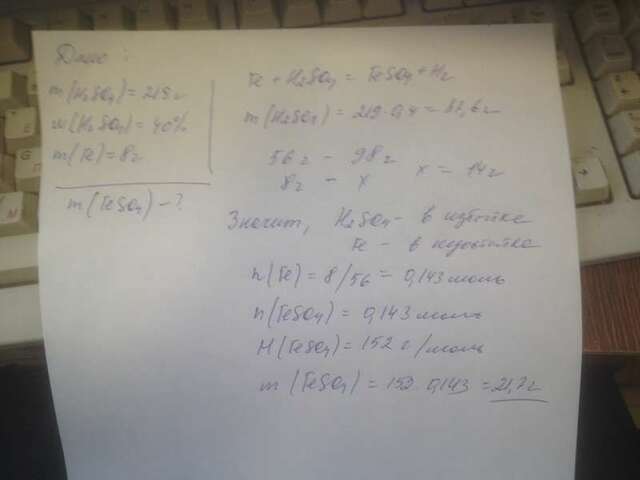 Дано:
m(H₂SO₄) = 219 г
w(H₂SO₄) = 40%
m(Fe) = 8 г
m(FeSO₄) - ?
Fe + H₂SO₄ = FeSO₄ + H₂
m(H₂SO₄) = 219·0,4 = 87,6 г
56 г - 98 г
8 г - x x = 14 г
Значит, H₂SO₄ - в избытке
Fe - в недостатке
n(Fe) = 8/56 = 0,143 моль
n(FeSO₄) = 0,143 моль
M(FeSO₄) = 152 г/моль
m(FeSO₄) = 152·0,143 = 21,7 г